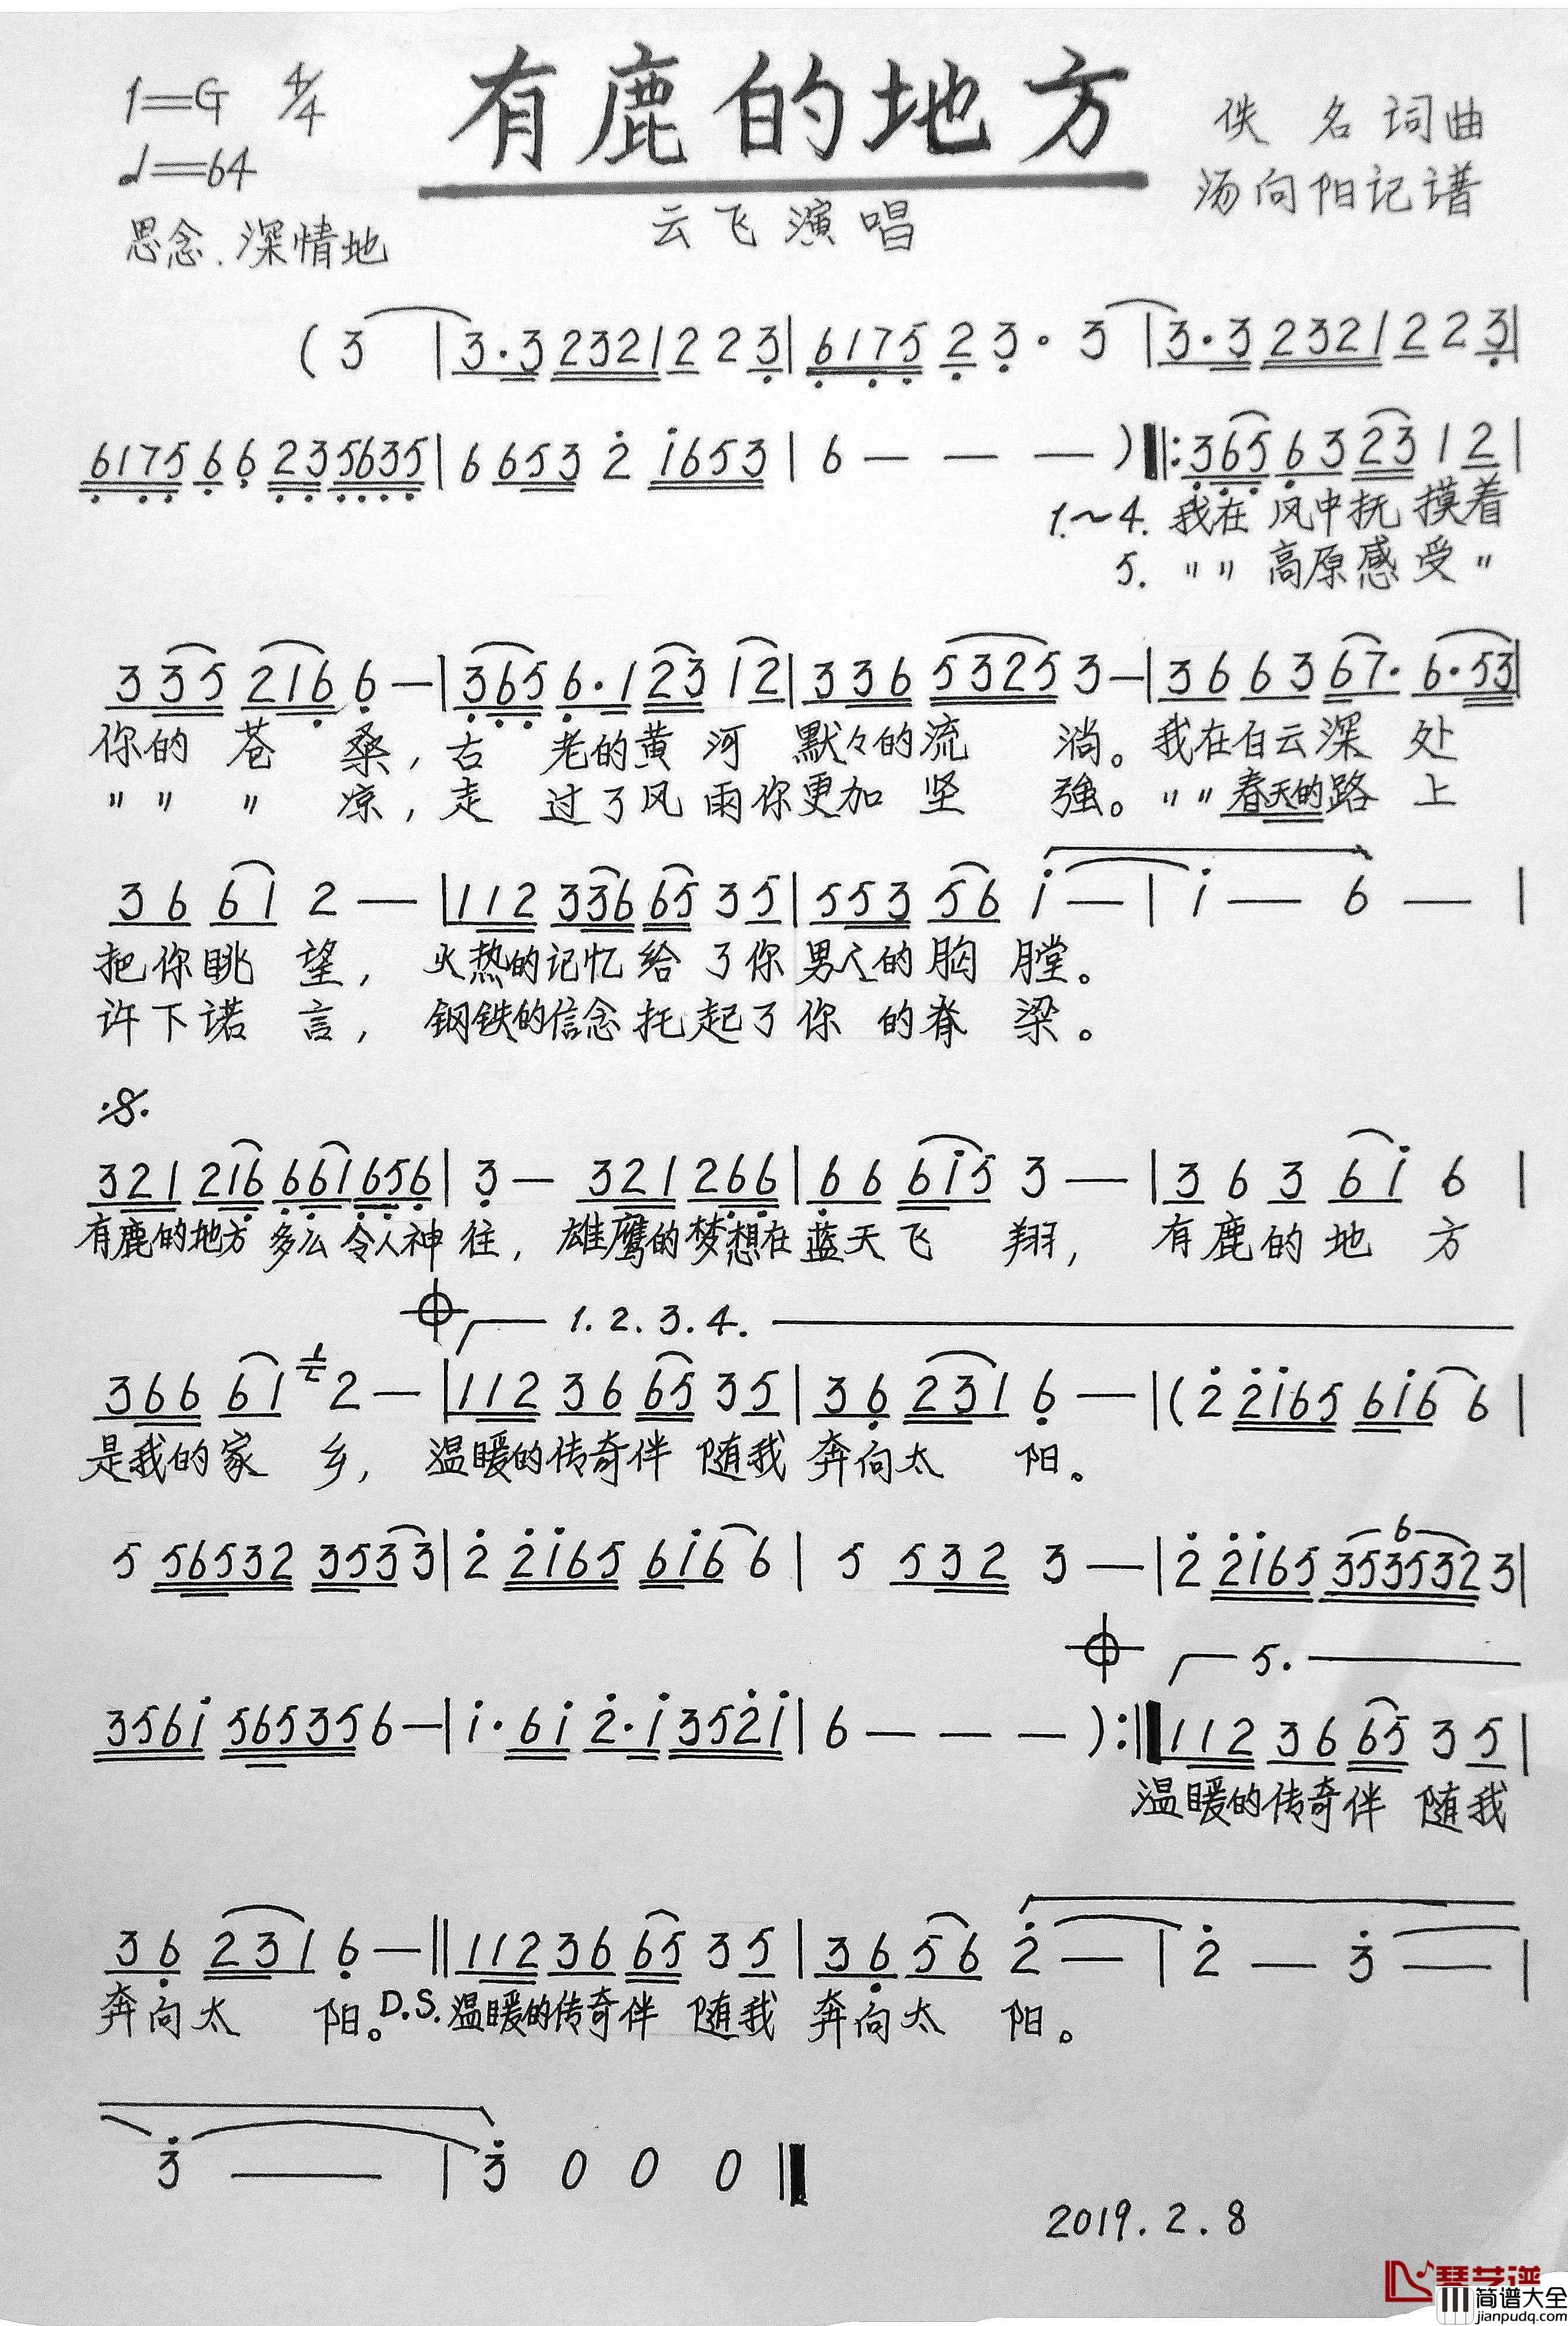 1=G 4/4
有鹿的地方
佚名词曲
♩=64
汤向阳记谱
云飞演唱
思念.深情地
(3 | 3·3 2321 2 2 3 | 6175 2 3· 3 | 3·3 2321 2 2 3 |
6175 6 6 23 5635 | 6 653 2 1653 | 6 — — — ) ‖: 365 63 23 1 2 |
1.～4. 我在风中抚摸着
5. 〃〃高原感受〃
335 216 6 — | 365 6·1 23 12 | 336 5325 3 — | 36 63 67· 6·53 |
你的苍桑,古老的黄河默々的流淌。我在白云深处
〃〃〃凉,走过了风雨你更加坚強。〃〃春天的路上
36 61 2 — | 112 336 65 35 | 553 56 1 — | 1 — 6 — |
把你眺望,火热的记忆给了你男人的胸膛。
许下诺言,钢铁的信念托起了你的脊梁。
321 216 661 656 | 3 — 321 266 | 66 615 3 — | 3 6 3 61 6 |
有鹿的地方多么令人神往,雄鹰的梦想在蓝天飞翔,有鹿的地方
1.2.3.4.
366 61 1 2 — | 112 36 65 35 | 36 231 6 — | (2 2165 616 6 |
是我的家乡,温暖的传奇伴随我奔向太阳。
6
5 56532 353 3 | 2 2165 616 6 | 5 532 3 — | 2 2165 353532 3 |
5.
3561 565356 — | 1·61 2·1 3521 | 6 — — — ) :‖ 112 36 65 35 |
温暖的传奇伴随我
36 231 6 — ‖ 112 36 65 35 | 36 56 2 — | 2 — 3 — |
奔向太阳。D.S.温暖的传奇伴随我奔向太阳。
3 — | 3 0 0 0 ‖
2019.2.8
琴艺谱
简谱大全
jianpudq.com